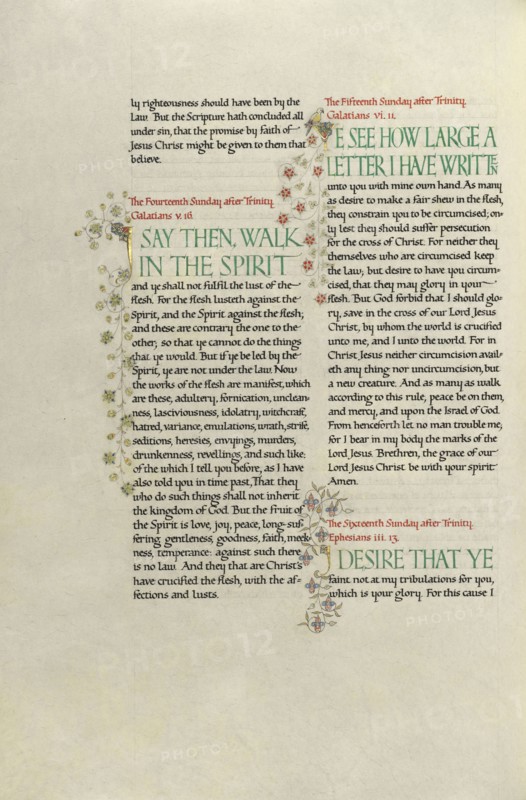 ly righteousness should have been by the
Law. But the Scripture hath concluded all
under sin, that the promise by faith of
Jesus Christ might be given to them that
believe.
The Fourteenth Sunday after Trinity.
Galatians v. 16.
I SAY THEN, WALK
IN THE SPIRIT
and ye shall not fulfil the lust of the
flesh. For the flesh lusteth against the
Spirit, and the Spirit against the flesh;
and these are contrary the one to the
other; so that ye cannot do the things
that ye would. But if ye be led by the
Spirit, ye are not under the law. Now
the works of the flesh are manifest, which
are these, adultery, fornication, unclean-
ness, lasciviousness, idolatry, witchcraft,
hatred, variance, emulations, wrath, strife,
seditions, heresies, envyings, murders,
drunkenness, revellings, and such like:
of the which I tell you before, as I have
also told you in time past, That they
who do such things shall not inherit
the kingdom of God. But the fruit of
the Spirit is love, joy, peace, long-suf-
fering gentleness, goodness, faith, meek-
ness, temperance: against such there
is no law. And they that are Christ's
have crucified the flesh, with the af-
fections and lusts.
The Fifteenth Sunday after Trinity.
Galatians vi. 11.
YE SEE HOW LARGE A
LETTER I HAVE WRITTEN
unto you with mine own hand. As many
as desire to make a fair shew in the flesh,
they constrain you to be circumcised; on-
ly lest they should suffer persecution
for the cross of Christ. For neither they
themselves who are circumcised keep
the law; but desire to have you circum-
cised, that they may glory in your
flesh. But God forbid that I should glo-
ry, save in the cross of our Lord Jesus
Christ, by whom the world is crucified
unto me, and I unto the world. For in
Christ Jesus neither circumcision avail-
eth any thing nor uncircumcision, but
a new creature. And as many as walk
according to this rule, peace be on them,
and mercy, and upon the Israel of God.
From henceforth let no man trouble me,
for I bear in my body the marks of the
Lord Jesus. Brethren, the grace of our
Lord Jesus Christ be with your spirit
Amen.
The Sixteenth Sunday after Trinity.
Ephesians iii. 13.
I DESIRE THAT YE
faint not at my tribulations for you,
which is your glory. For this cause I
PHOTO12
PHOTO12
PHOTO12
PHOTO12